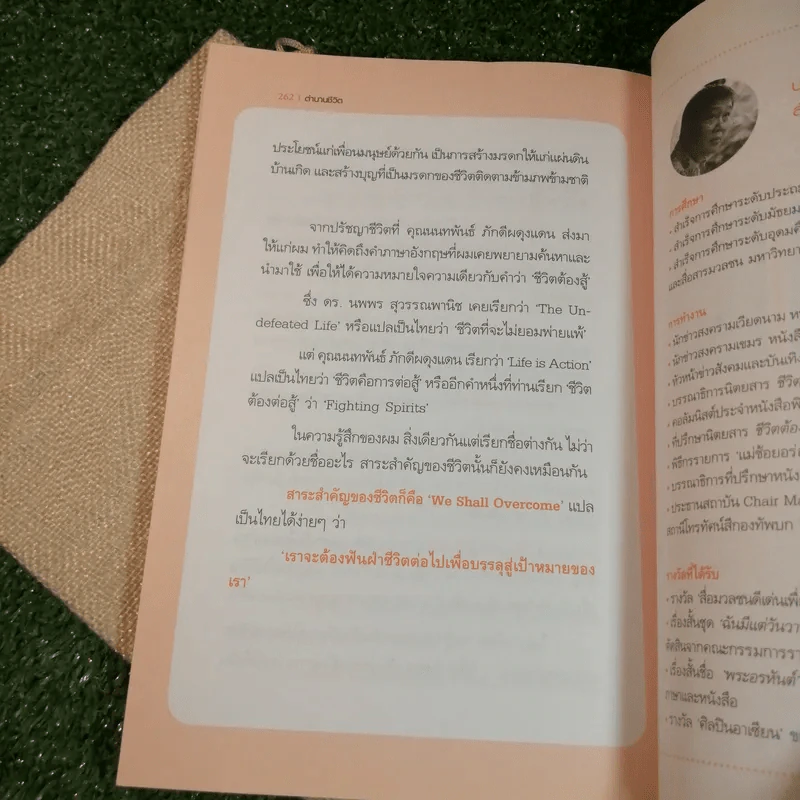 262 | ตำนานชีวิต
ประโยชน์แก่เพื่อนมนุษย์ด้วยกัน เป็นการสร้างมรดกให้แก่แผ่นดิน
บ้านเกิด และสร้างบุญที่เป็นมรดกของชีวิตติดตามข้ามภพข้ามชาติ
จากปรัชญาชีวิตที่ คุณนนทพันธ์ ภักดีผดุงแดน ส่งมา
ให้แก่ผม ทำให้คิดถึงคำภาษาอังกฤษที่ผมเคยพยายามค้นหาและ
นำมาใช้ เพื่อให้ได้ความหมายใจความเดียวกับคำว่า ‘ชีวิตต้องสู้’
ซึ่ง ดร. นพพร สุวรรณพานิช เคยเรียกว่า ‘The Un-
defeated Life’ หรือแปลเป็นไทยว่า ‘ชีวิตที่จะไม่ยอมพ่ายแพ้’
แต่ คุณนนทพันธ์ ภักดีผดุงแดน เรียกว่า ‘Life is Action’
แปลเป็นไทยว่า ‘ชีวิตคือการต่อสู้’ หรืออีกคำหนึ่งที่ท่านเรียก ‘ชีวิต
ต้องต่อสู้’ ว่า ‘Fighting Spirits’
ในความรู้สึกของผม สิ่งเดียวกันแต่เรียกชื่อต่างกัน ไม่ว่า
จะเรียกด้วยชื่ออะไร สาระสำคัญของชีวิตนั้นก็ยังคงเหมือนกัน
สาระสำคัญของชีวิตก็คือ ‘We Shall Overcome’ แปล
เป็นไทยได้ง่ายๆ ว่า
‘เราจะต้องฟันฝ่าชีวิตต่อไปเพื่อบรรลุสู่เป้าหมายของ
เรา’
การศึกษา
• สำเร็จการศึกษาระดับประถม
• สำเร็จการศึกษาระดับมัธยม
• สำเร็จการศึกษาระดับอุดมศึ
และสื่อสารมวลชน มหาวิทยา
การทำงาน
• นักข่าวสงครามเวียดนาม
• นักข่าวสงครามเขมร หนังสือ
• หัวหน้าข่าวสังคมและบันเทิง
• บรรณาธิการนิตยสาร ชีวิต
• คอลัมนิสต์ประจำหนังสือพิ
• ที่ปรึกษานิตยสาร ชีวิตต้อง
• พิธีกรรายการ ‘แม่ช้อยอร่อ
• บรรณาธิการที่ปรึกษาหนัง
• ประธานสถาบัน Chair Ma
สถานีโทรทัศน์สีกองทัพบก
รางวัลที่ได้รับ
• รางวัล ‘สื่อมวลชนดีเด่นเพื่อ
• เรื่องสั้นชุด ‘ฉันมีแต่วันวา
ตัดสินจากคณะกรรมการรา
• เรื่องสั้นชื่อ ‘พระอรหันต์
ภาษาและหนังสือ
• รางวัล ‘ศิลปินอาเซียน’ ข